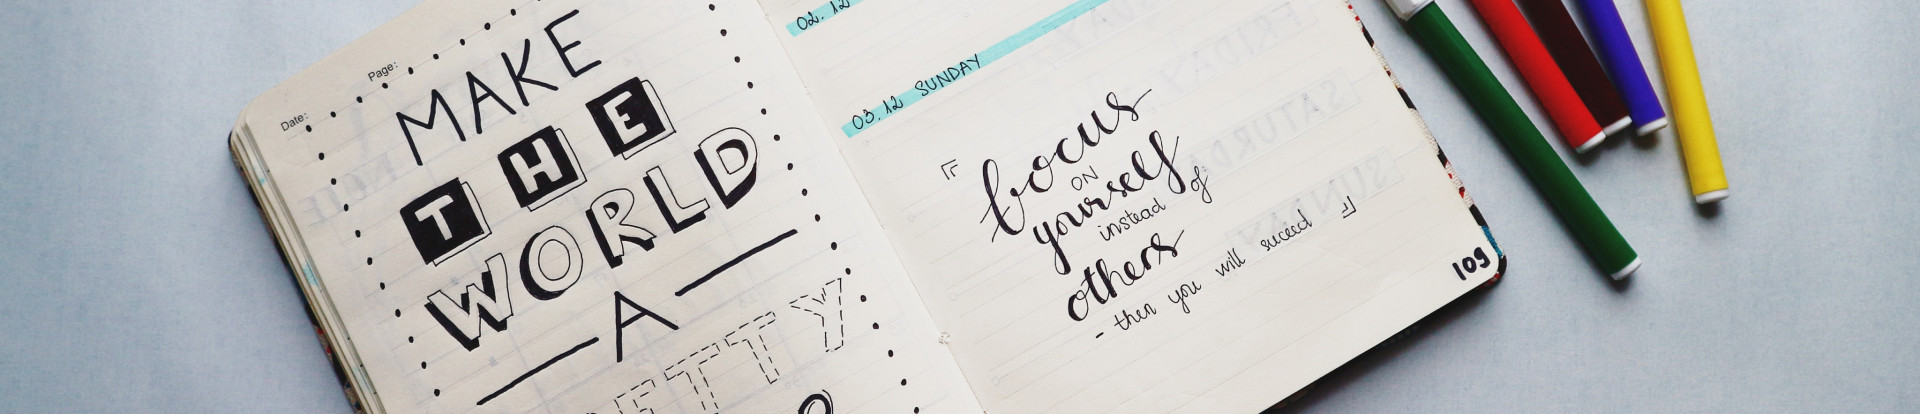 Page:
Date:
MAKE
THE
WORLD
A
ETTY
02. 12
03. 12 SUNDAY
focus
ON
yourself
instead of
others
- then you will suceed
109